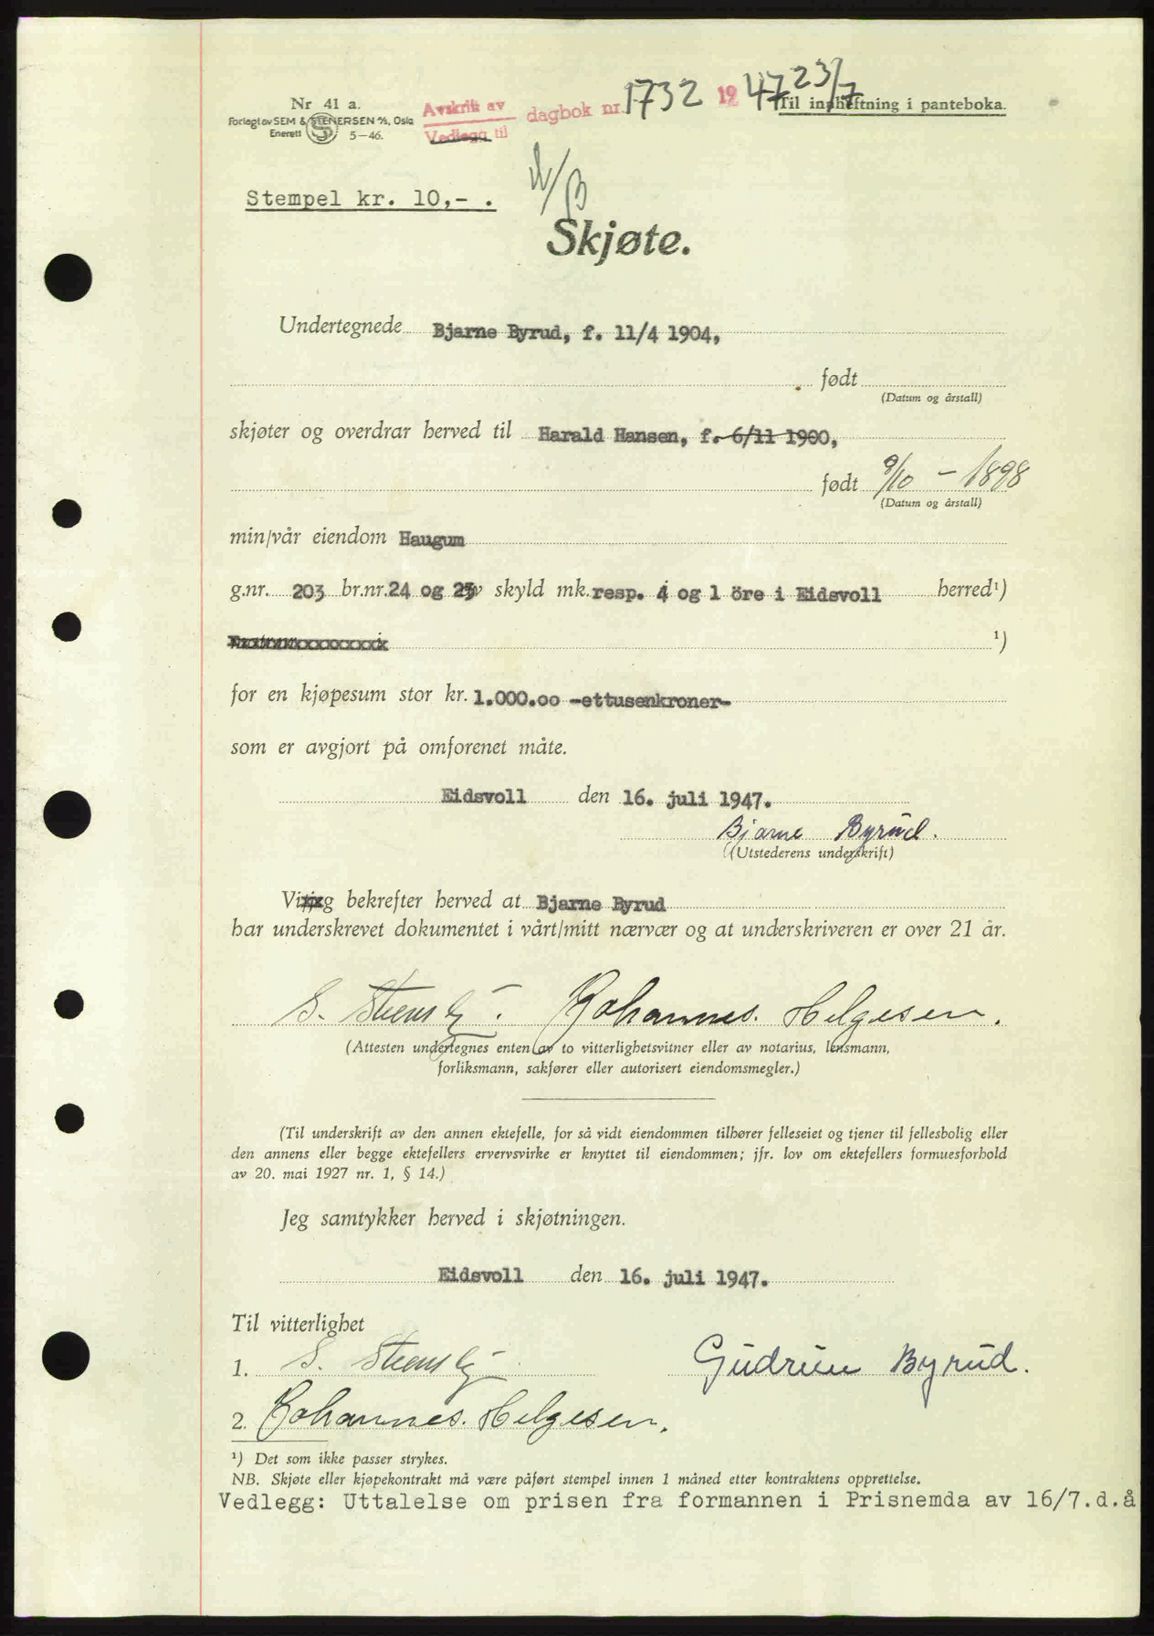 Nr 41 a.
Forlagt av SEM & STENERSEN A/S, Oslo
Enerett 5-46.
Avskrift av
Vedlegg til
dagbok nr. 1732 1947 23/7
Til innheftning i panteboka.
Stempel kr. 10,- .
Skjøte.
Undertegnede Bjarne Byrud, f. 11/4 1904,
født
(Datum og årstall)
skjøter og overdrar herved til Harald Hansen, f. 6/11 1900,
født 9/10 - 1898
(Datum og årstall)
min/vår eiendom Haugum
g.nr. 203 br.nr. 24 og 25 av skyld mk. resp. 4 og 1 öre i Eidsvoll herred¹)
¹)
for en kjøpesum stor kr. 1.000.00 -ettusenkroner-
som er avgjort på omforenet måte.
Eidsvoll den 16. juli 1947.
Bjarne Byrud.
(Utstederens underskrift)
Vi bekrefter herved at Bjarne Byrud
har underskrevet dokumentet i vårt/mitt nærvær og at underskriveren er over 21 år.
S. Stensby. Johannes. Helgesen.
(Attesten undertegnes enten av to vitterlighetsvitner eller av notarius, lensmann,
forliksmann, sakfører eller autorisert eiendomsmegler.)
(Til underskrift av den annen ektefelle, for så vidt eiendommen tilhører felleseiet og tjener til fellesbolig eller
den annens eller begge ektefellers ervervsvirke er knyttet til eiendommen; jfr. lov om ektefellers formuesforhold
av 20. mai 1927 nr. 1, § 14.)
Jeg samtykker herved i skjøtningen.
Eidsvoll den 16. juli 1947.
Til vitterlighet
1. S. Stensby Gudrun Byrud.
2. Johannes. Helgesen.
¹) Det som ikke passer strykes.
NB. Skjøte eller kjøpekontrakt må være påført stempel innen 1 måned etter kontraktens opprettelse.
Vedlegg: Uttalelse om prisen fra formannen i Prisnemda av 16/7.d.å